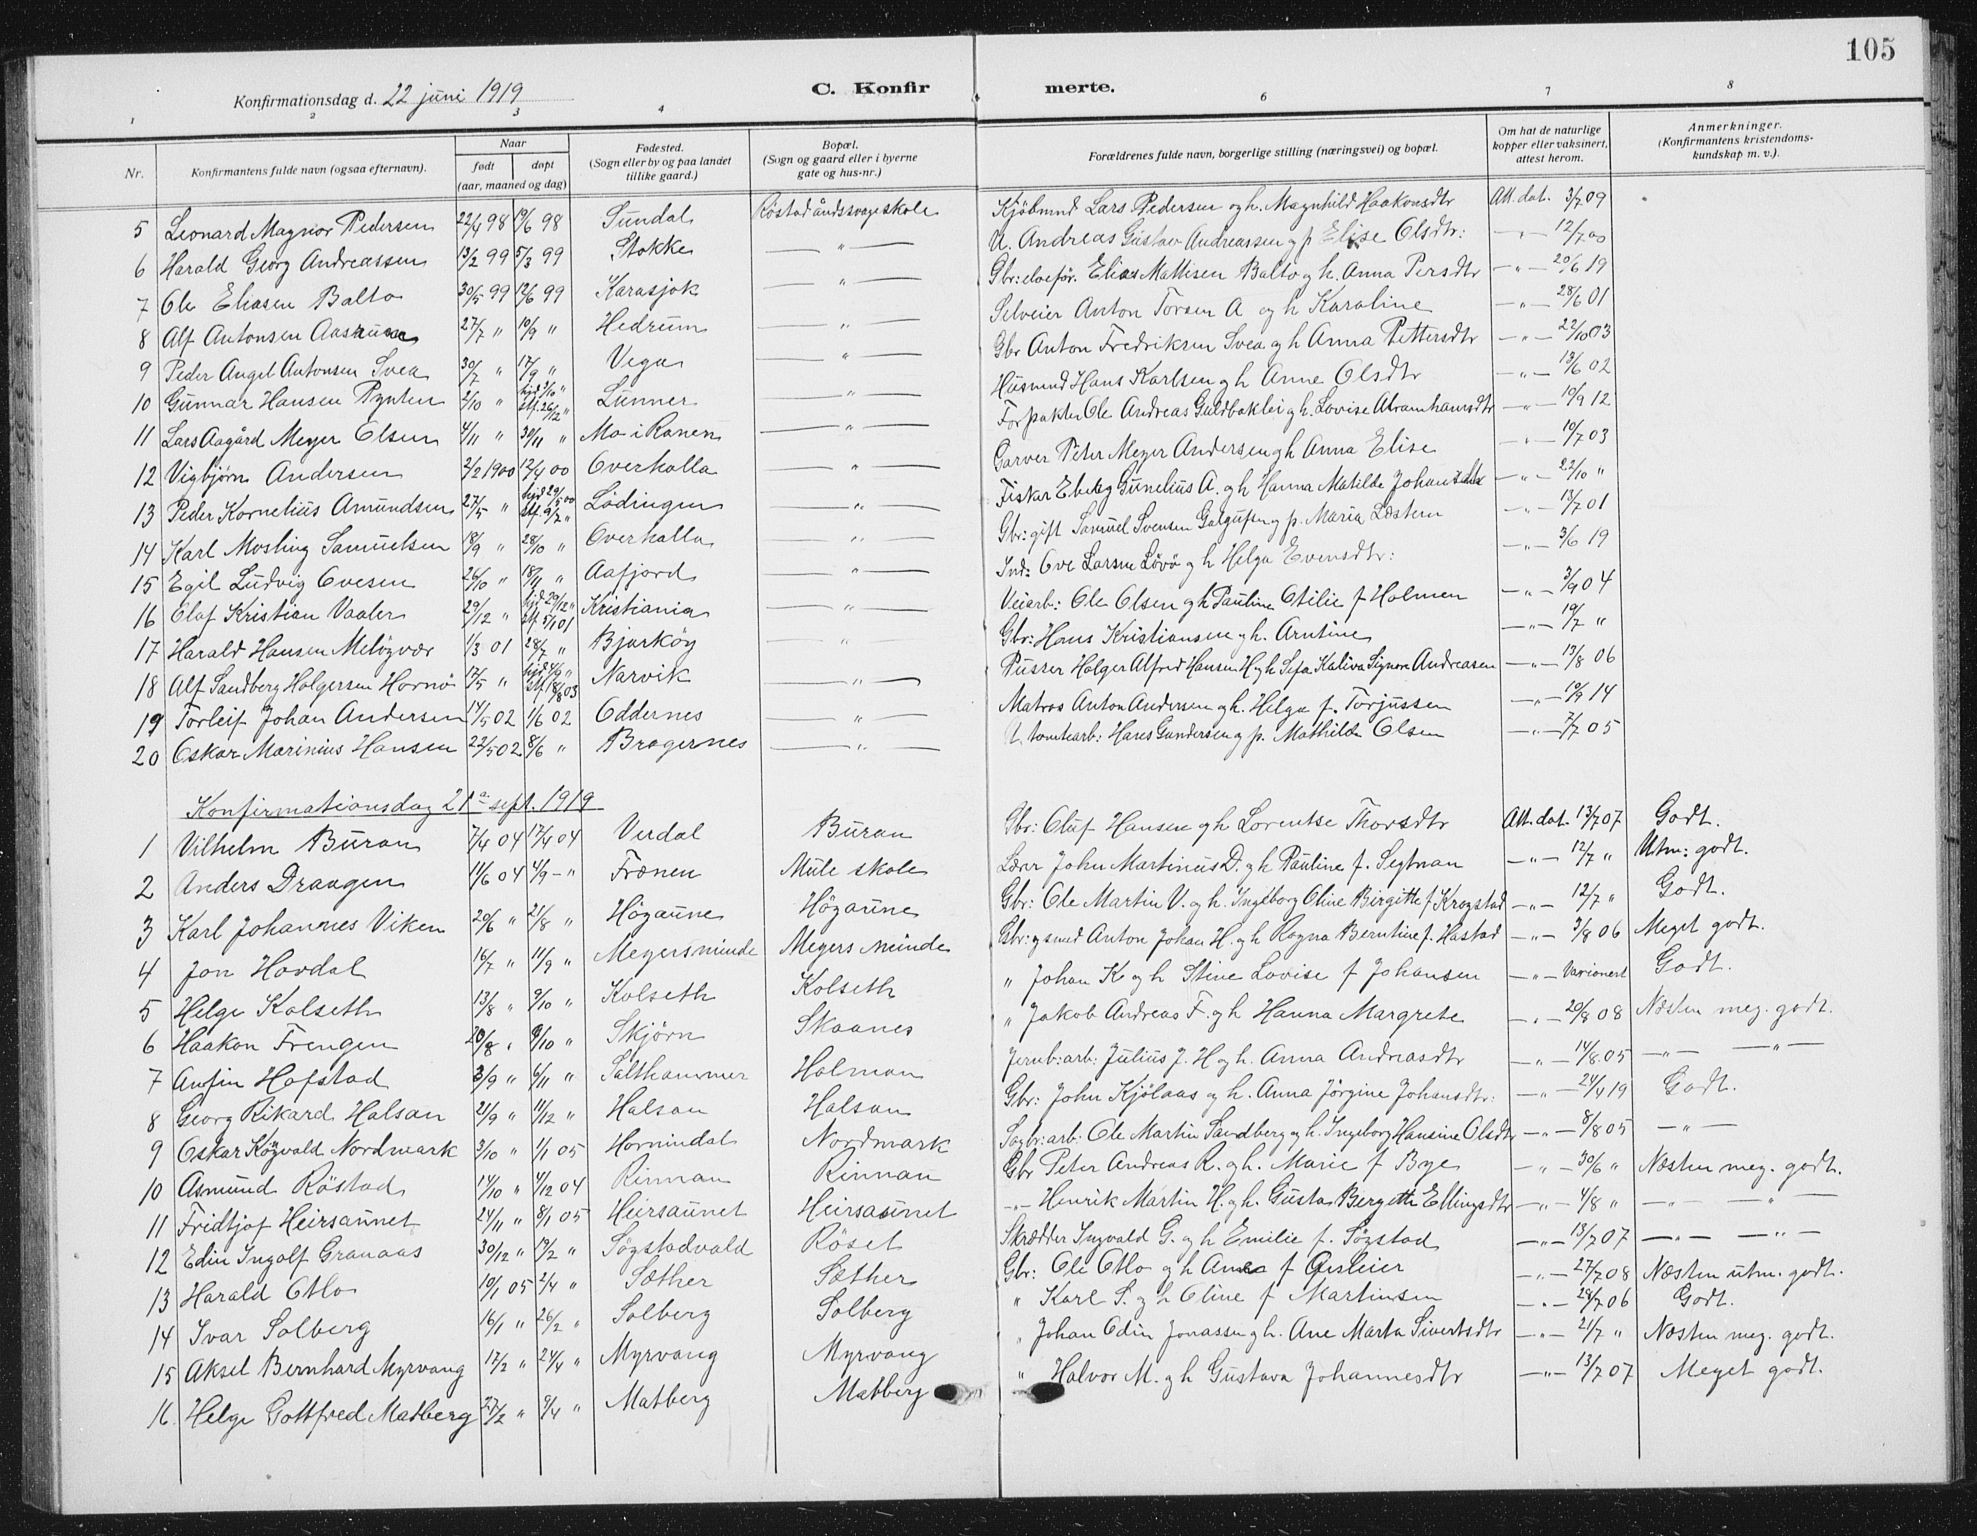 105
Konfirmationsdag d. 22 juni 1919 C. Konfirmerte.
1 2 3 4 6 7 8
Nr. Konfirmantens fulde navn (ogsaa efternavn). Naar født døpt (aar, maaned og dag) Fødested. (Sogn eller by og paa landet tillike gaard.) Bopæl. (Sogn og gaard eller i byerne gate og hus-nr.) Forældrenes fulde navn, borgerlige stilling (næringsvei) og bopæl. Om hat de naturlige kopper eller vaksinert, attest herom. Anmerkninger. (Konfirmantens kristendomskundskap m. v.).
5 Leonard Magnor Pedersen 22/4 98 19/6 98 Sundal Röstad åndssvageskole Kjöbmnd Lars Pedersen og h. Magnhild Haakonsdtr Att. dat. 3/7 09
6 Harald Georg Andreassen 13/2 99 5/3 99 Stokke — " — U. Andreas Gustav Andreassen og p Elise Olsdtr: — " — 12/7 00
7 Ole Eliasen Balto 30/5 99 12/6 99 Karasjok — " — Gbr: elvefør. Elias Mattisen Balto og h. Anna Persdtr — " — 20/6 19
8 Alf Antonsen 27/7 " 10/9 " Hedrum — " — Selveier Anton Torsen A og h Karoline — " — 28/6 01
9 Peder Angel Antonsen Svea 30/7 " 17/9 " Vega — " — Gbr Anton Fredriksen Svea og h Anna Pettersdtr — " — 22/10 03
10 Gunnar Hansen Pynten 2/10 " hjd 3/10 " stf. 26/12 " Lunner — " — Husmnd Hans Karlsen og h Anne Olsdtr — " — 13/6 02
11 Lars Aagård Meyer Olsen 4/11 " 30/11 " Mo i Ranen — " — Forpakter Ole Andreas Guldbaklei og h. Lovise Abramhamsdtr — " — 10/9 12
12 Vigbjørn Andersen 2/2 1900 12/4 00 Overhalla — " — Garver Peter Meyer Andersen og h Anna Elise — " — 10/7 03
13 Peder Kornelius Amundsen 27/5 " hjd 29/5 00 stf. 9/7 " Lödingen — " — Fisker Eberg Gunelius A. og h Hanna Matilde — " — 22/10 "
14 Karl Mosling Samuelsen 18/9 " 28/10 " Overhalla — " — Gbr: gift Samuel Svensen Galgufsen og p. Maria — " — 13/7 01
15 Egil Ludvig Ovesen 26/10 " 18/11 " Aafjord — " — Ind: Ove Larsen Lövö og h Helga Evensdtr: — " — 3/6 19
16 Olaf Kristian Vaaler 29/12 " hjd 29/12 " stf 5/1 01 Kristiania — " — Veiarb: Ole Olsen og h Pauline Otilie f Holmen — " — 3/9 04
17 Harald Hansen Melöyvær 1/3 01 28/7 " Bjarköy — " — Gbr: Hans Kristiansen og h. Arntine — " — 19/7 "
18 Alf Sandberg Holgersen Hornö 17/5 " Narvik — " — Pusser Holger Alfred Hansen H og h Sefa Kaliva Signora Andreasen — " — 13/8 06
19 Torleif Johan Andersen 14/5 02 1/6 02 Oddernes — " — Matros Anton Andersen og h. Helga f. Torjussen — " — 10/9 14
20 Oskar Marinius Hansen 22/5 02 8/6 " Bragernes — " — U. tomtearb: Hans Gundersen og p. Mathilde Olsen — " — 7/7 05
Konfirmationsdag 21de sept. 1919
1 Vilhelm Buran 7/4 04 17/4 04 Verdal Buran Gbr: Oluf Hansen og h Lorentse Thorsdtr Att. dat. 13/7 07 Godt.
2 Anders Draagen 11/6 04 4/9 — " Frænen Mule skole Lærer John Martinius D. og h Pauline f. Segtnan — " — 12/7 " Utm: godt.
3 Karl Johannes Viken 20/6 " 21/8 " Högaune Högaune Gbr: Ole Martin V. og h. Ingeborg Oline Birgitte f Krogstad — " — 12/7 " Godt.
4 Jon Hovdal 16/7 " 11/9 " Meyersminde Meyers minde Gbr: og smed Anton Johan H. og h Ragna Berntine f. Hastad — " — 3/8 06 Meget godt.
5 Helge Kolseth 13/8 " 9/10 " Kolseth Kolseth " Johan K og h Stine Lovise f Johansen — " — Varionert Godt.
6 Haakon Frengen 20/8 " 9/10 " Skjörn Skaanes " Jakob Andreas F. og h Hanna Margrete — " — 20/8 08 Næsten meg. godt.
7 Anfin Hofstad 3/9 " 6/11 " Salthammer Holman Jernb: arb: Julius J. H og h. Anna Andreasdtr — " — 14/8 05 — " — — " —
8 Georg Rikard Halsan 21/9 " 11/12 " Halsan Halsan Gbr: John Kjölaas og h. Anna Jörgine Johansdtr: — " — 24/4 19 Godt.
9 Oskar Nordmark 3/10 " 1/1 05 Hornindal Nordmark Sagbr: arb: Ole Martin Sandberg og h. Ingeborg Hansine Olsdtr — " — 8/8 05 — " —
10 Asmund Röstad 14/10 " 4/12 04 Rinnan Rinnan Gbr Peter Andreas R. og h. Marie f Bye — " — 30/6 " Næsten meg. godt.
11 Fridtjof Heirsaunet 24/11 " 8/1 05 Heirsaunet Heirsaunet — " — Henrik Martin H. og h. Gusta Bergitte Ellingsdtr — " — 4/8 " — " — " —
12 Edin Ingolf Granaas 30/12 " 19/2 " Sögstadvald Röset Skrædder Ingvald G. og h Emilie f. Sögstad — " — 13/7 07 — " — — " —
13 Harald Otlo 19/1 05 2/4 " Sæther Sæther Gbr: Ole Otlo og h Anna f — " — 27/7 08 Næsten utm. godt.
14 Ivar Solberg 16/1 " 26/2 " Solberg Solberg " Karl S. og h Oline f Martinsen — " — 28/7 06 Godt.
15 Aksel Bernhard Myrvang 17/2 " 24/4 " Myrvang Myrvang " Johan Odin Jonassen og h. Ane Marta Sivertsdtr — " — 21/7 " Næsten meg. godt.
16. Helge Gottfred Matberg 27/2 " 9/4 " Matberg Matberg " Halvor M. og h Gustava Johannesdtr — " — 13/7 07 Meget godt.